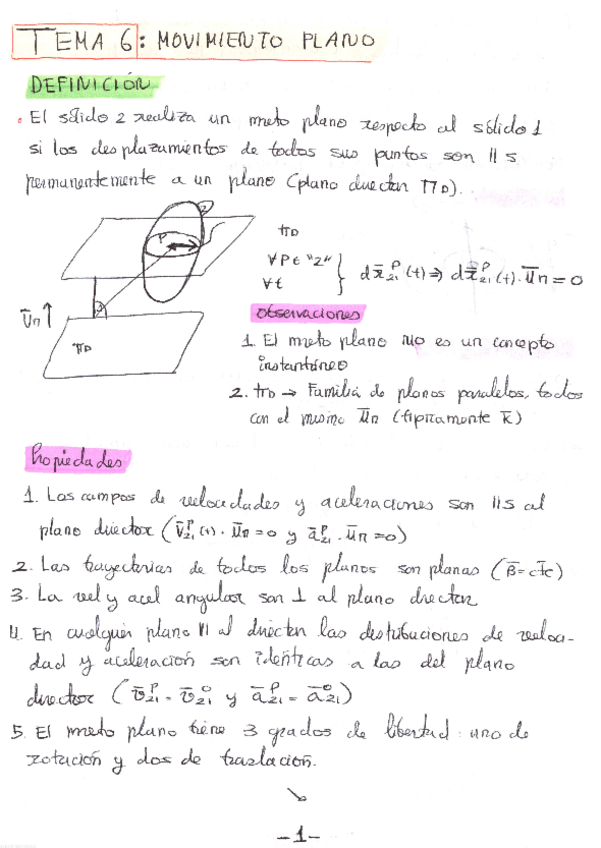 TEMA 6: MOVIMIENTO PLANO
DEFINICIÓN
• El sólido 2 realiza un mvto plano respecto al sólido 1
si los desplazamientos de todos sus puntos son ∥s
permanentemente a un plano (plano director ΠD).
2
P
ūn ↑
πD
πD
∀P ∈ "2"
∀t
} dx̄ᴾ₂₁(t) ⇒ dx̄ᴾ₂₁(t) · ūn = 0
observaciones
1. El mvto plano NO es un concepto
instantáneo
2. πD → Familia de planos paralelos, todos
con el mismo ūn (típicamente k̄)
Propiedades
1. Los campos de velocidades y aceleraciones son ∥s al
plano director (v̄ᴾ₂₁(t) · ūn = 0 y āᴾ₂₁ · ūn = 0)
2. Las trayectorias de todos los planos son planas (B̄ = cte)
3. La vel y acel angular son ⊥ al plano director
4. En cualquier plano ∥ al director las distribuciones de veloci-
dad y aceleración son idénticas a las del plano
director (v̄ᴾ₂₁ = v̄ᴼ₂₁ y āᴾ₂₁ = āᴼ₂₁)
5. El mvto plano tiene 3 grados de libertad: uno de
rotación y dos de traslación.
-1-